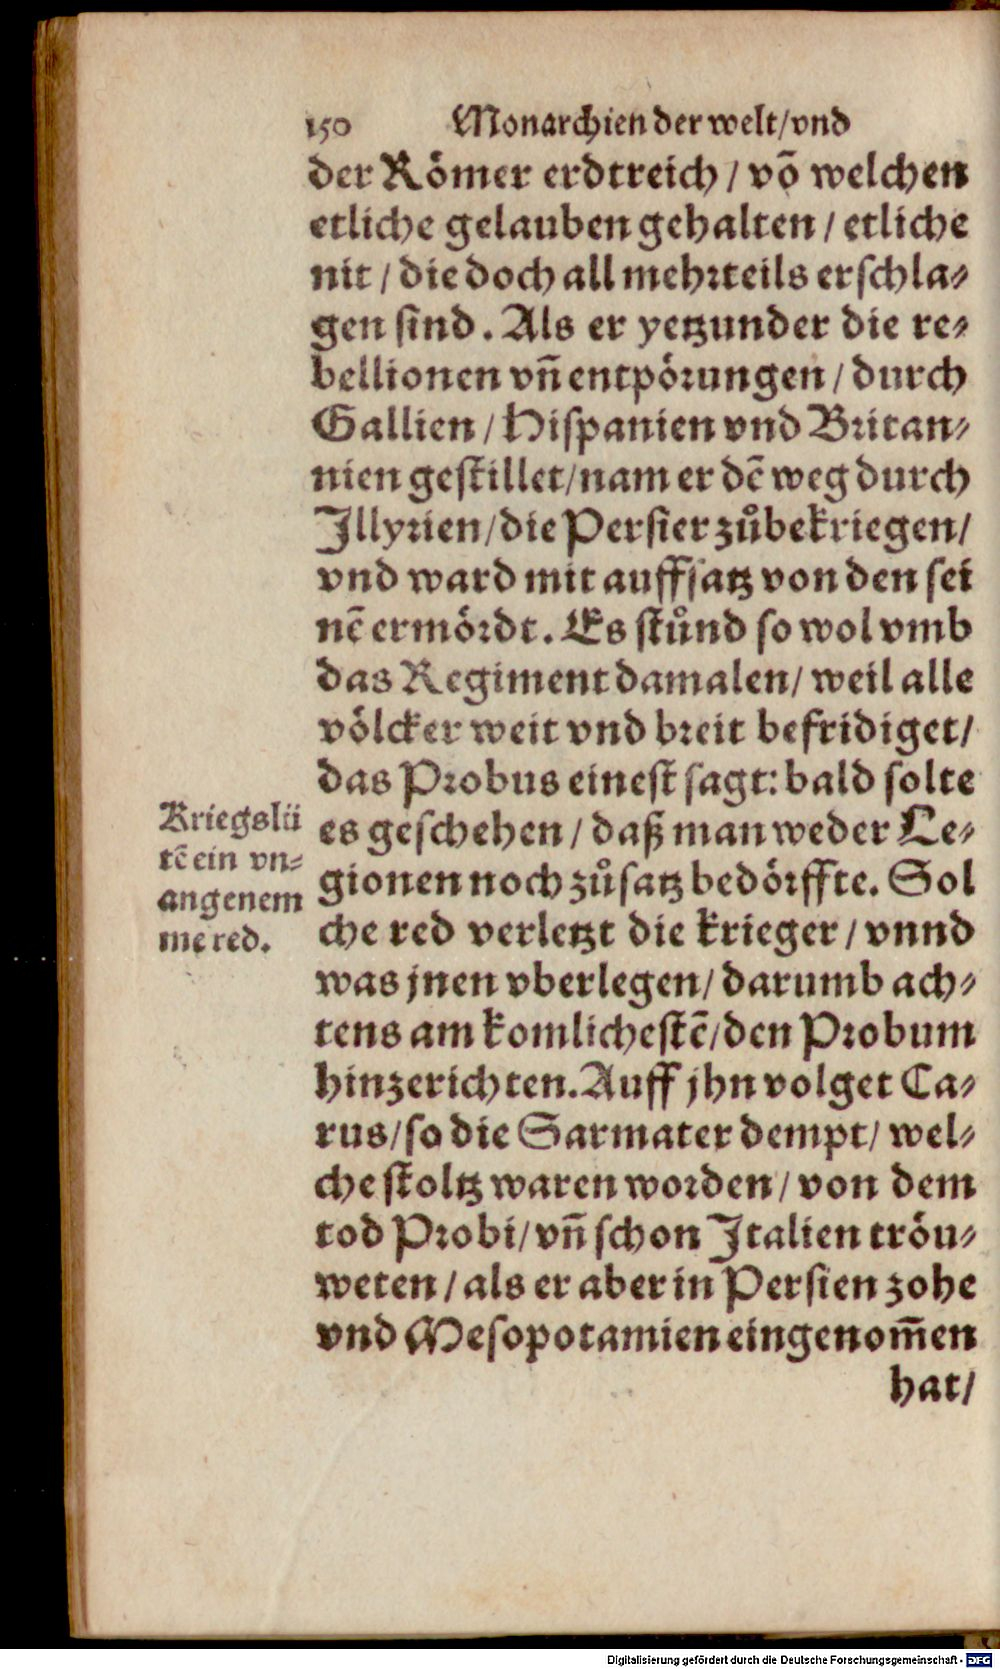 150 Monarchien der welt/vnd
der Römer erdtreich / võ welchen
etliche gelauben gehalten / etliche
nit / die doch all mehrteils erschla⸗
gen sind. Als er yetzunder die re⸗
bellionen vñ entpörungen / durch
Gallien / Hispanien vnd Britan⸗
nien gestillet/nam er dẽ weg durch
Illyrien/die Persier zůbekriegen/
vnd ward mit auffsatz von den sei
nẽ ermördt. Es stůnd so wol vmb
das Regiment damalen/ weil alle
völcker weit vnd breit befridiget/
das Probus einest sagt: bald solte
es geschehen / daß man weder Le⸗
gionen noch zůsatz bedörffte. Sol
che red verletzt die krieger / vnnd
was jnen vberlegen/ darumb ach⸗
tens am komlichestẽ/den Probum
hinzerichten. Auff jhn volget Ca⸗
rus/so die Sarmater dempt/ wel⸗
che stoltz waren worden/ von dem
tod Probi/ vñ schon Italien tröu⸗
weten / als er aber in Persien zohe
vnd Mesopotamien eingenom̃en
hat/
Kriegslü
tẽ ein vn⸗
angenem
me red.
Digitalisierung gefördert durch die Deutsche Forschungsgemeinschaft - DFG